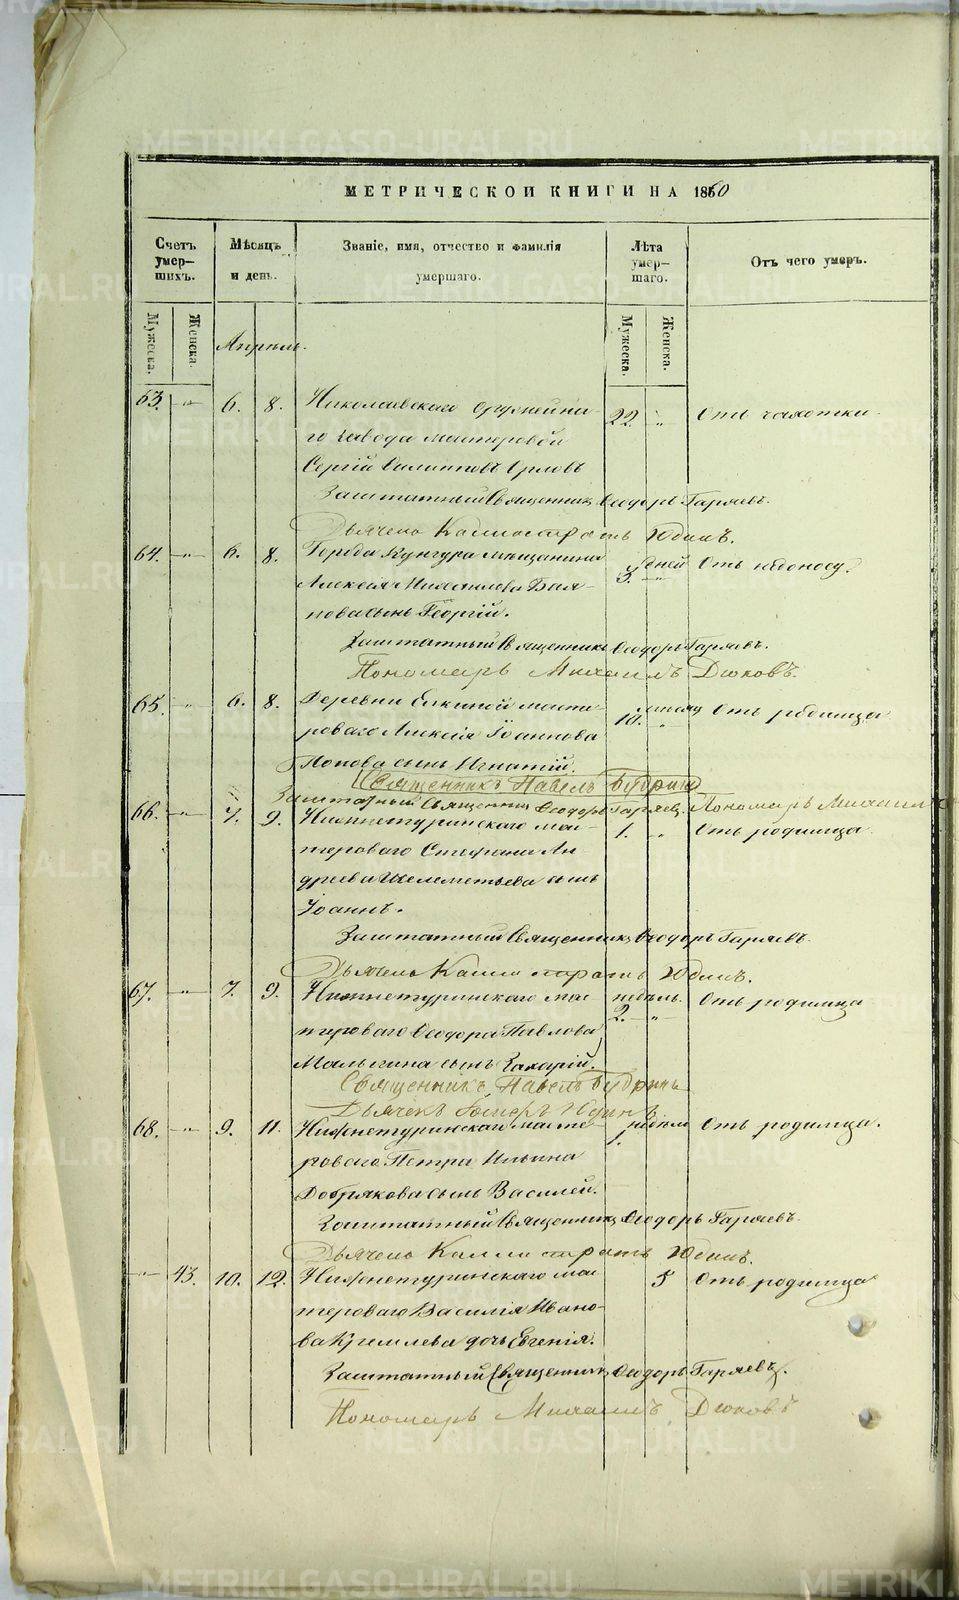 МЕТРИЧЕСКОЙ КНИГИ НА 1860
Счетъ умер-шихъ.
Мѣсяцъ и день.
Званіе, имя, отчество и фамилія умершаго.
Лѣта умер-шаго.
Отъ чего умеръ.
Мужеска. Женска.
Апрель.
Мужеска. Женска.
63. — „ — 6. 8. Николаевскаго оружейна- 22. „ Отъ чахотки.
го завода мастеровой
Сергій Филиповъ Орловъ
Заштатный Священникъ Ѳеодоръ Гаряевъ.
Дьячекъ Каллистратъ Юдинъ.
64. — „ — 6. 8. Города Кунгура мѣщанина дней 3. „ Отъ недоносу.
Алексія
нова сынъ Георгій.
Заштатный Священникъ Ѳеодоръ Гаряевъ.
Пономарь Михаилъ Дюковъ.
65. — „ — 6. 8. Деревни Елкиной масте- месяц 10. „ Отъ родимца
роваго Алексія Іоаннова
Попова сынъ Игнатій.
Священникъ Павелъ Будринъ
Заштатный Священникъ Ѳеодоръ Гаряевъ Пономарь Михаилъ
66. — „ — 7. 9. Нижнетуринскаго мас- 1. „ Отъ родимца
тероваго Стефана Ан-
дреева Шелеметьева сынъ
Іоаннъ.
Заштатный Священникъ Ѳеодоръ Гаряевъ.
Дьячекъ Каллистратъ Юдинъ.
67. — „ — 7. 9. Нижнетуринскаго мас- недѣль 2. „ Отъ родимца
тероваго Ѳеодора Павлова
Малыгина сынъ Захарій.
Священникъ Павелъ Будринъ
Дьячекъ Юдинъ
68. — „ — 9. 11. Нижнетуринскаго масте- недѣли 1. Отъ родимца.
роваго Петра Ильина
Добрякова сынъ Василей.
Заштатный Священникъ Ѳеодоръ Гаряевъ.
Дьячекъ Каллистратъ Юдинъ.
— „ — 43. 10. 12. Нижнетуринскаго мас- 5 Отъ родимца
тероваго Василія Ивано-
ва Кремлева дочь Евгенія.
Заштатный Священникъ Ѳеодоръ Гаряевъ.
Пономарь Михаилъ Дюковъ
METRIKI.GASO-URAL.RU